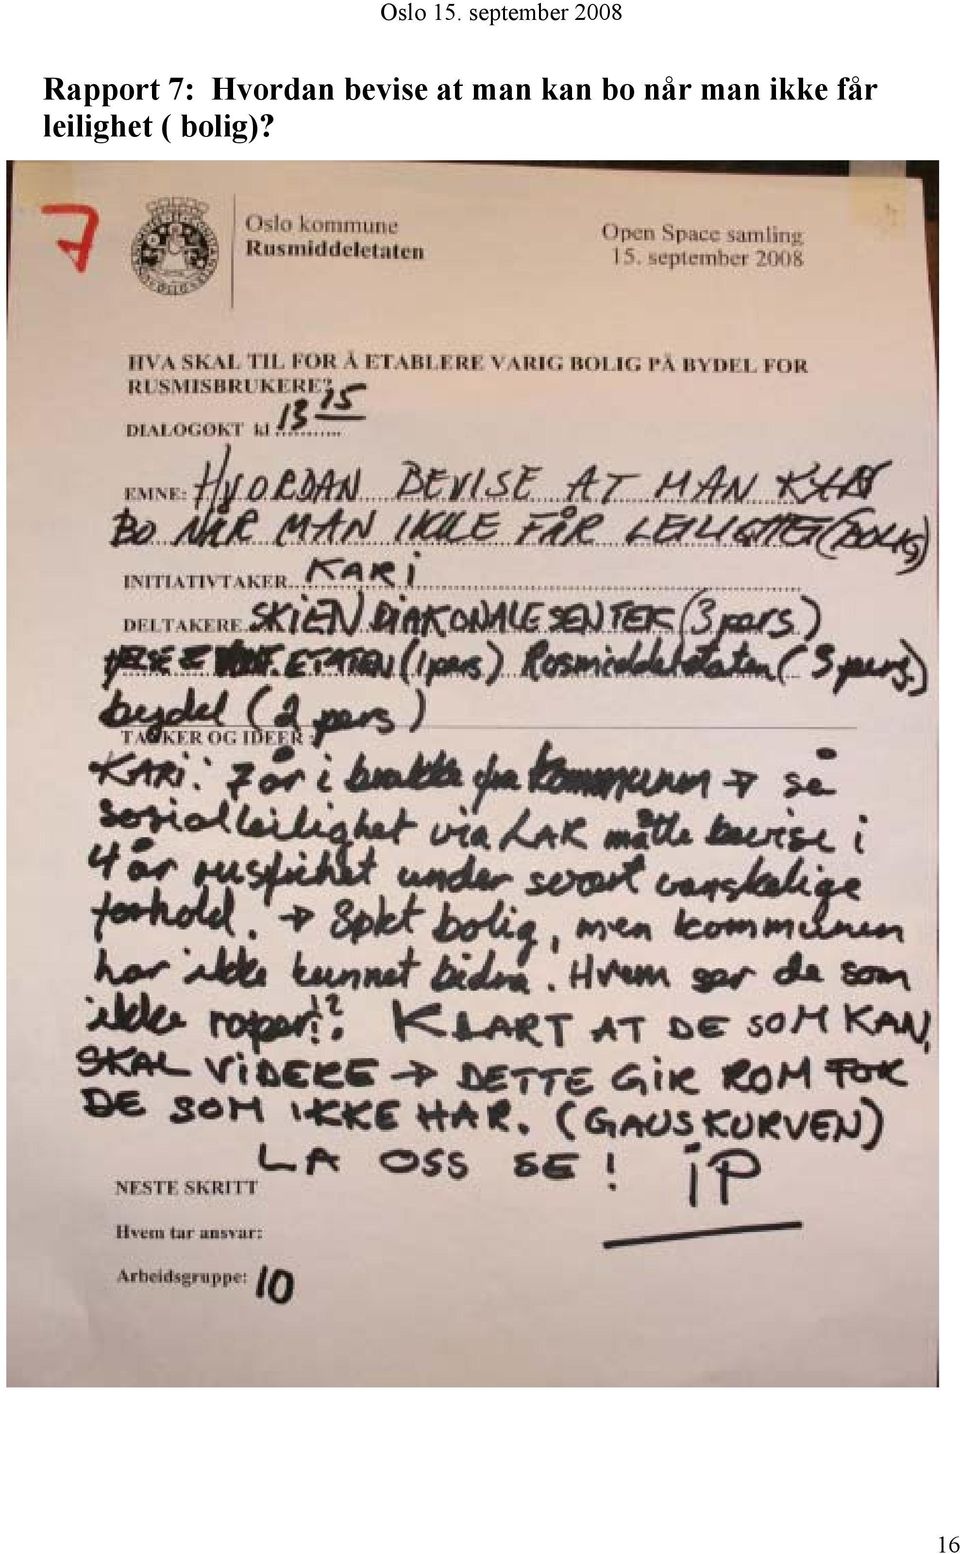 Oslo 15. september 2008
Rapport 7: Hvordan bevise at man kan bo når man ikke får
leilighet ( bolig)?
7
Oslo kommune
Rusmiddeletaten
Open Space samling
15. september 2008
HVA SKAL TIL FOR Å ETABLERE VARIG BOLIG PÅ BYDEL FOR
RUSMISBRUKERE?
DIALOGØKT kl 13 15
EMNE: HVORDAN BEVISE AT MAN KAN
BO NÅR MAN IKKE FÅR LEILIGHET (BOLIG)
INITIATIVTAKER KARI
DELTAKERE SKIEN DIAKONALE SENTER (3 pers)
ETATEN (1 pers) Rusmiddeletaten (3 pers.)
bydel (2 pers)
TANKER OG IDEER :
KARI: 7 år i brakke fra kommunen → så
sosialleilighet via LAR måtte bevise i
4 år rusfrihet under svært vanskelige
forhold. → Søkt bolig, men kommunen
har ikke kunnet bidra. Hvem ser de som
ikke roper!? KLART AT DE SOM KAN,
SKAL VIDERE → DETTE GIR ROM FOR
DE SOM IKKE HAR. (GAUSKURVEN)
LA OSS SE! IP
NESTE SKRITT
Hvem tar ansvar:
Arbeidsgruppe: 10
16